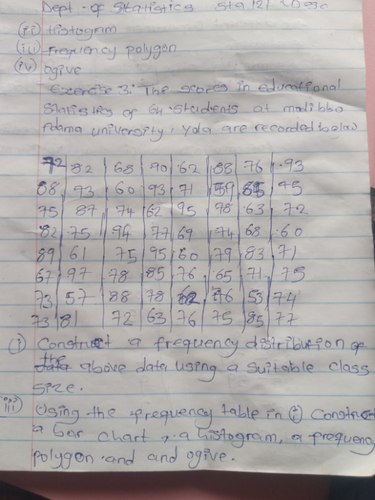 Dept. of Statistics Sta 121
(ii) histogram
(iii) frequency polygon
(iv) ogive
Exercise 3: The scores in educational
Statistics of 64 students at modibbo
Adama university, yola are recorded below
72 82 68 90 62 88 76 93
88 93 60 93 71 59 85 95
75 87 74 62 95 98 63 72
82 75 94 77 69 74 68 60
89 61 75 95 60 79 83 71
67 97 78 85 76 65 71 75
73 57 88 78 62 76 53 74
73 81 72 63 76 75 85 77
(i) Construct a frequency distribution of
the above data using a suitable class
size.
(ii) Using the frequency table in (i) Construct
a bar chart, a histogram, a frequency
polygon and and ogive.